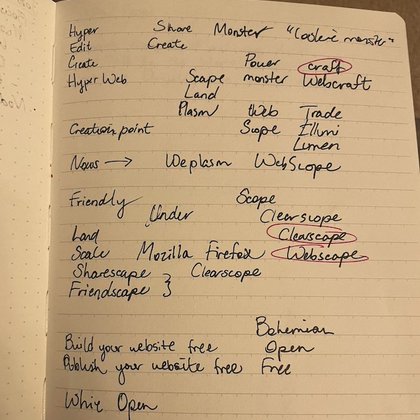 Hyper Share Monster "Cookie monster"
Edit Create
Create Power craft
Hyper Web Scape monster Webcraft
Land
Plasm Web Trade
Creation point Scope Illumi
Lumen
Nouns → Weplasm WebScope
Friendly Scope
Under Clearscope
Land Clearscape
Scale Mozilla Firefox Webscape
Sharescape } Clearscope
Friendscape
Bohemian
Build your website free Open
Publish your website free Free
Open